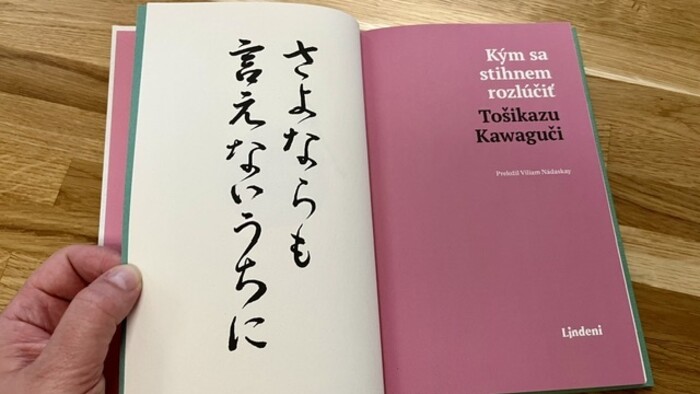 さよならも
言えないうちに
Kým sa
stihnem
rozlúčiť
Tošikazu
Kawaguči
Preložil Viliam Nádaskay
Lindeni